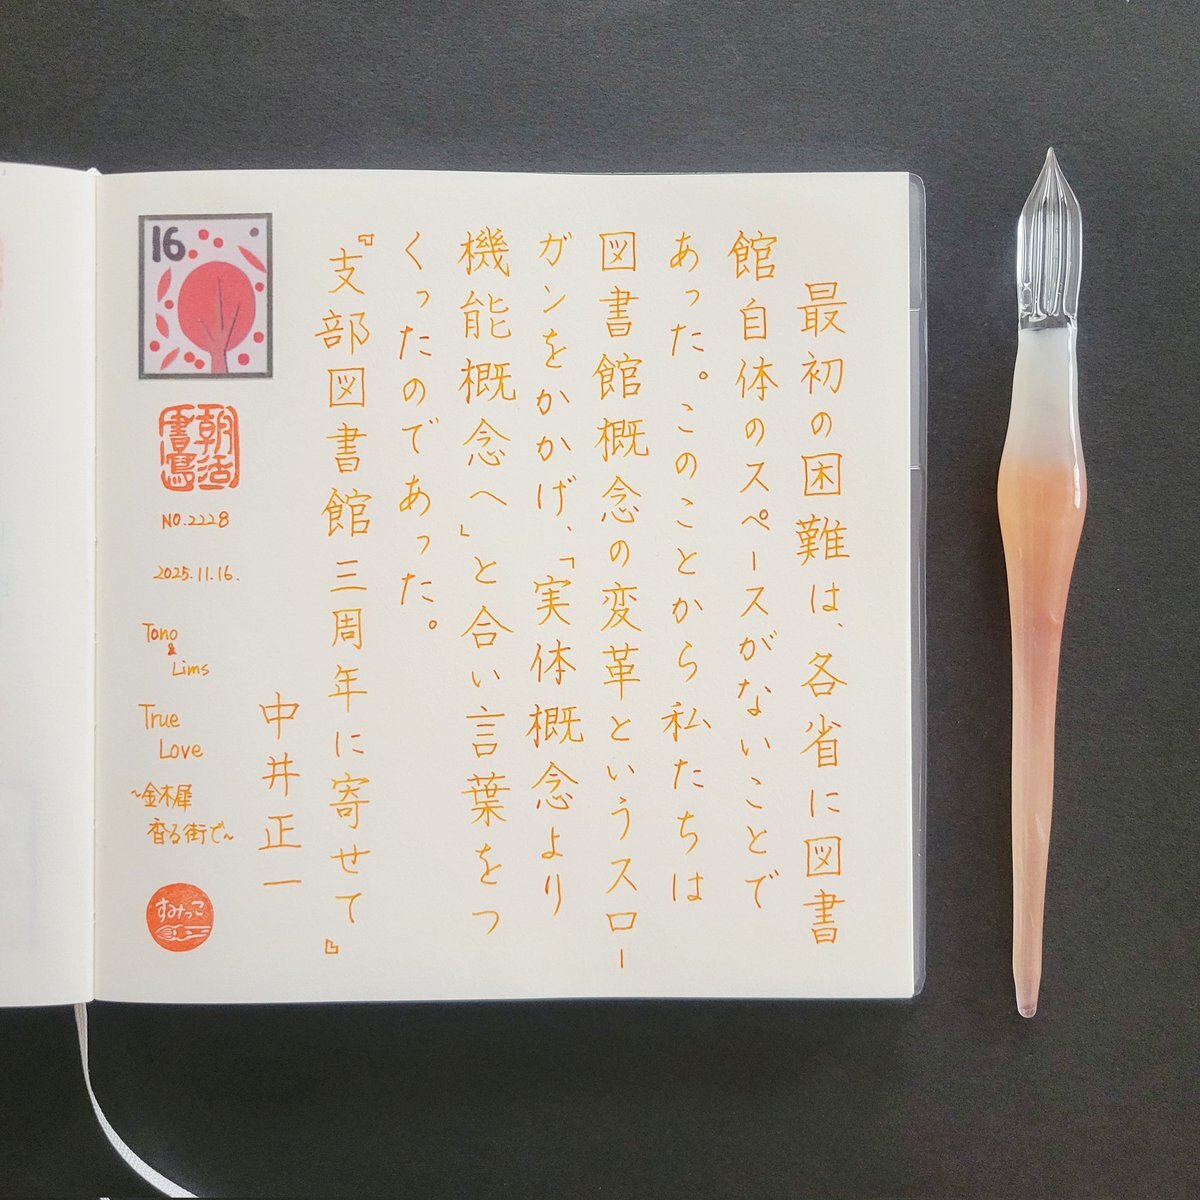 最初の困難は、各省に図書
館自体のスペースがないことで
あった。このことから私たちは
図書館概念の変革というスロー
ガンをかかげ、「実体概念より
機能概念へ」と合い言葉をつ
くったのであった。
『支部図書館三周年に寄せて』
中井正一
16
朝活
書写
NO.2228
2025.11.16.
Tono
&
Lims
True
Love
~金木犀
香る街で~
すみっこ